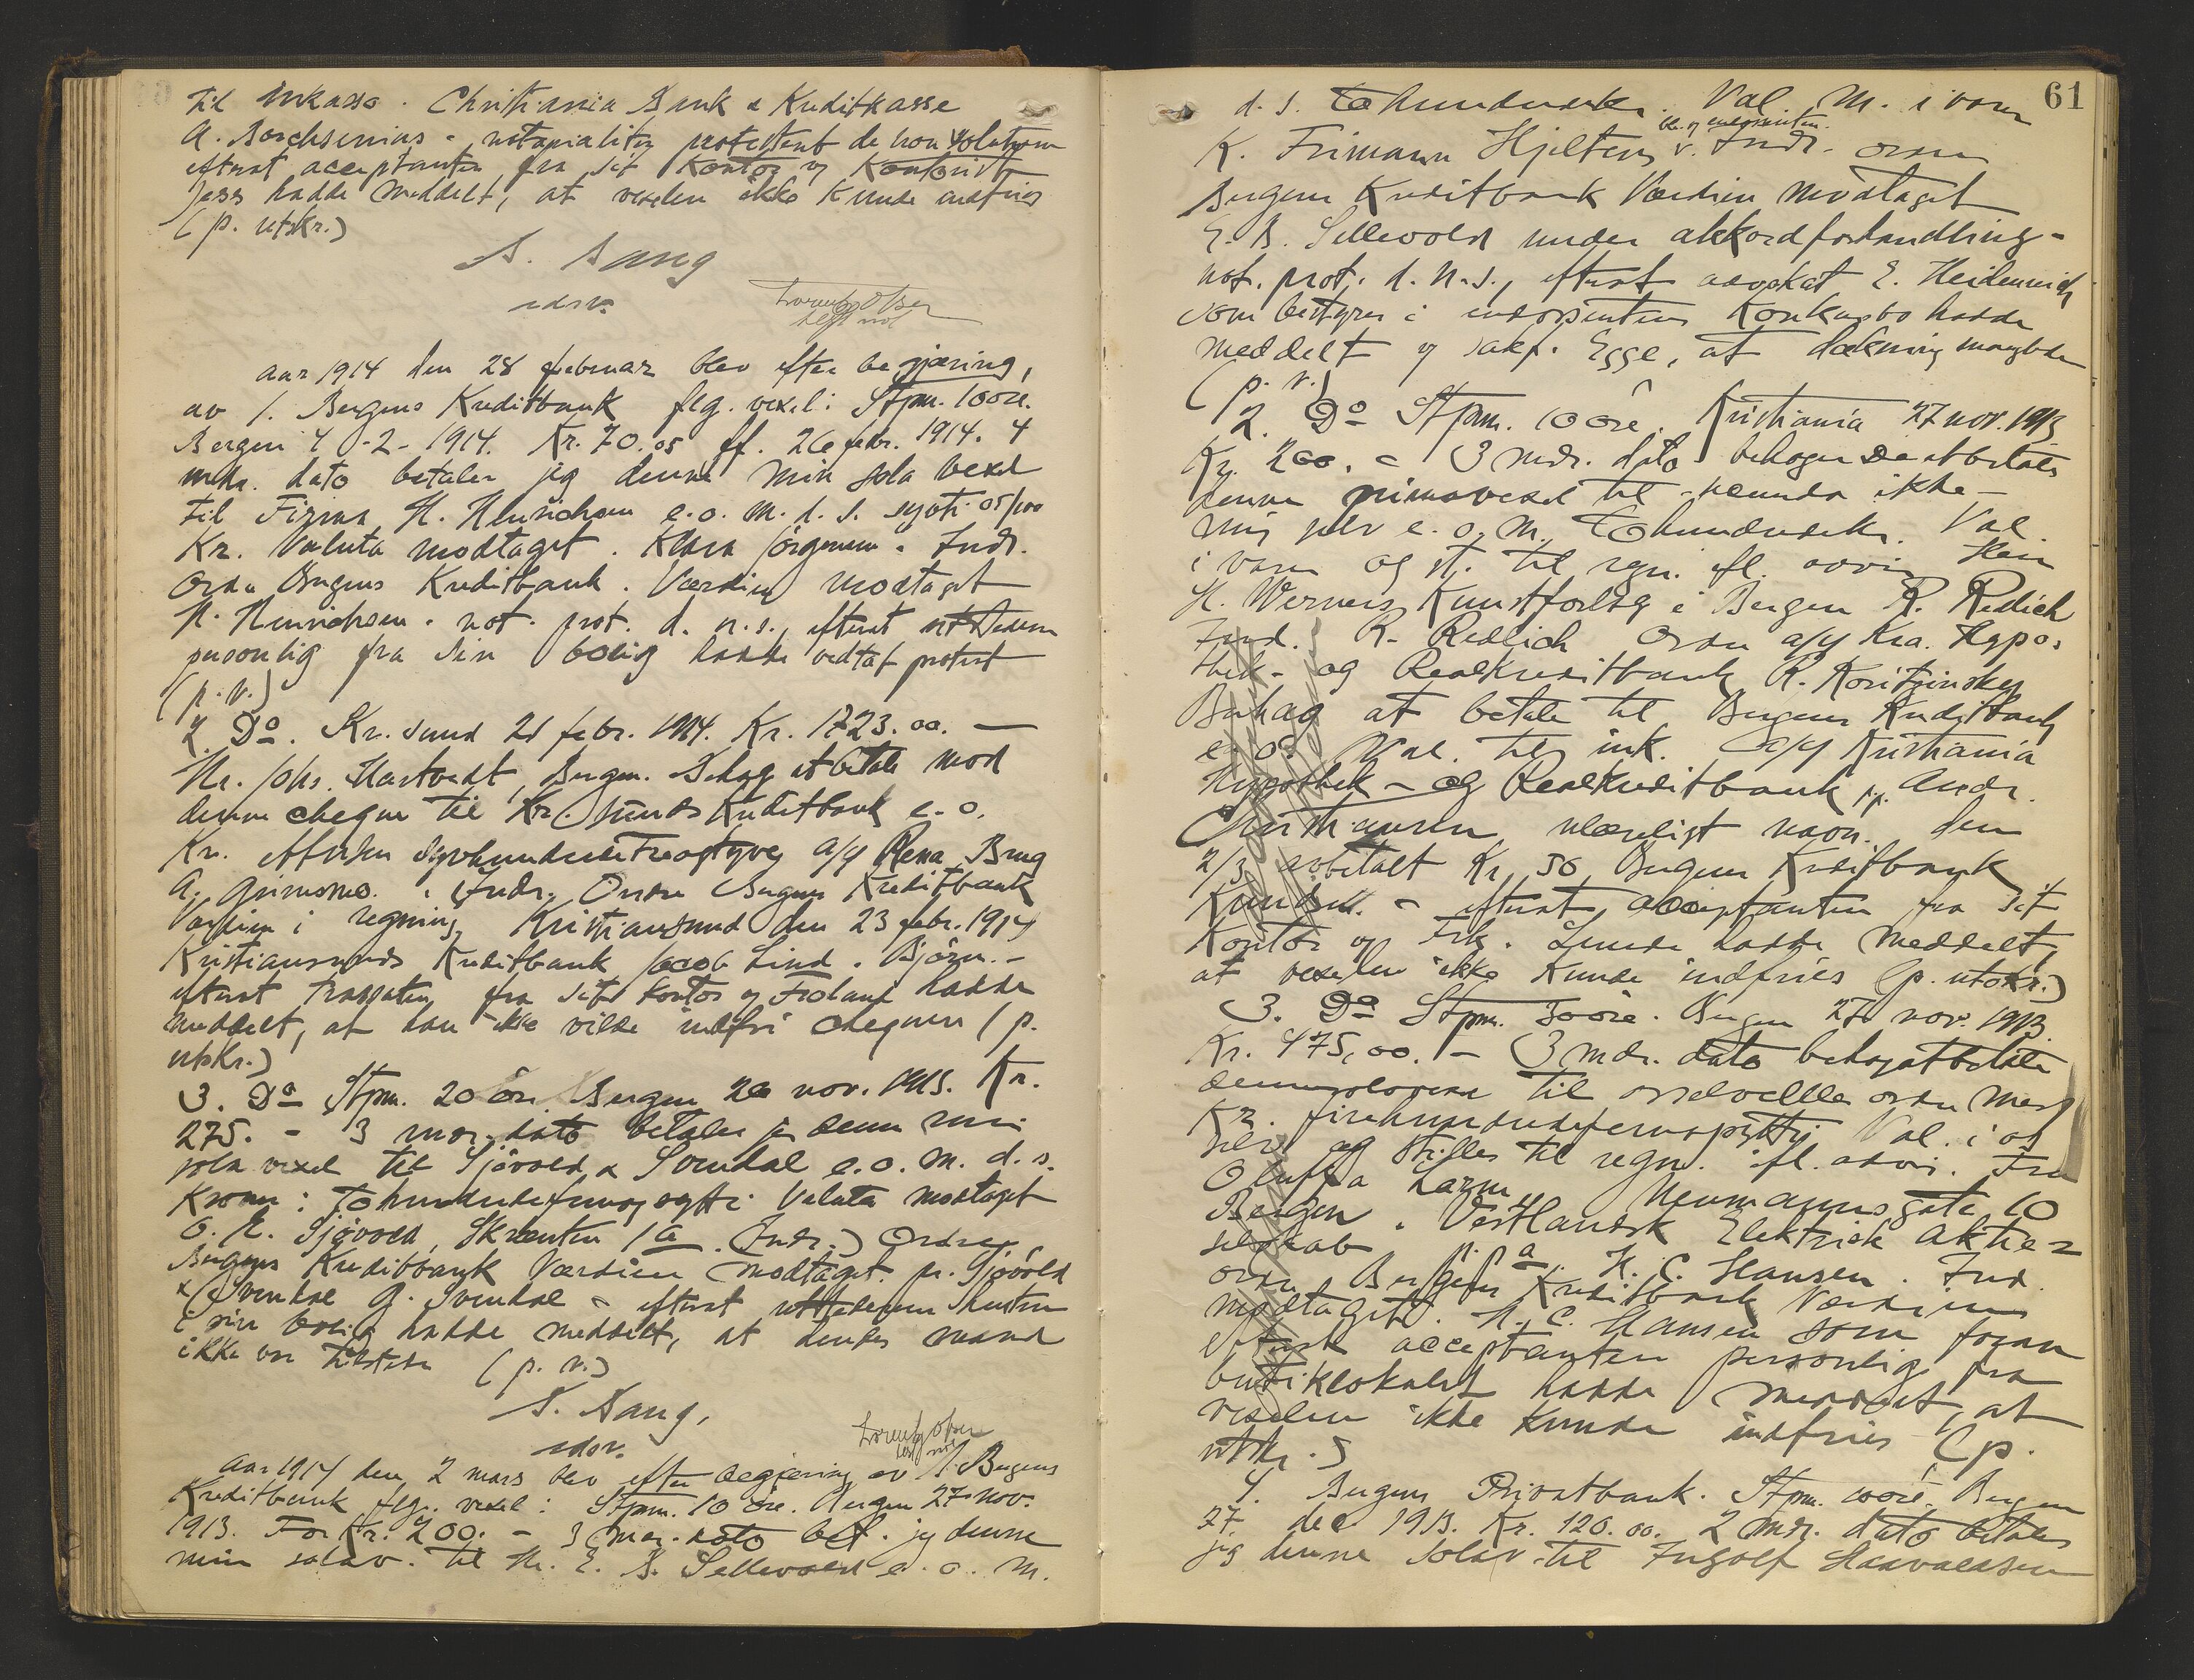 til inkasso. Christiania Bank & Kreditkasse
A. Borchsenius - notarialiter protestert de non solutione
efterat acceptanten fra sit kontor og kontorist
Jess hadde meddelt, at vexelen ikke kunde indfries
(p. utskr.)
S. Bang
edsv.
aar 1914 den 28 februar blev efter begjæring,
av 1. Bergens Kreditbank flg. vexel: Stpm. 10 øre.
Bergen 4 -2- 1914. Kr. 70.05 ff. 26 febr. 1914. 4
mdr. dato betaler jeg denne min sola vexel
til Firma H. Henrichsen e. o. m. d. s. sytti 05/100
Kr. Valuta modtaget. Klara Jørgensen. Indr.
Ordre Bergens Kreditbank. Værdien modtaget
H. Henrichsen. not. prot. d. n. s., efterat
personlig fra sin bolig hadde vedtat protest
(p. v.)
2. Do. Kr. sund 21 febr. 1914. Kr. 1723.00. —
Hr. Johs. Hartvedt, Bergen. Behag at betale mod
denne cheque til Kr. sunds Kreditbank e. o.
Kr. Attenhundrede A/S Rena Brug
A. Grimsmo. Indr. Ordre Bergens Kreditbank
Værdien i regning. Kristiansund den 23 febr. 1914
Kristiansunds Kreditbank Jacob Lind. Bjørn. -
efterat trassaten fra sit kontor og hadde
meddelt, at han ikke vilde indfri chequen (p.
utskr.)
3. Do Stpm. 20 øre. Bergen 26 nov. 1913. Kr.
275. - 3 mdr. dato betaler jeg denne min
sola vexel til Sjøvold & Svendal e. o. m. d. s.
Kroner: tohundredefemogsytti. Valuta modtaget
O. E. Sjøvold, Skrenten 1a. (Indr.) Ordre
Bergens Kreditbank Værdien modtaget. pr. Sjøvold
& Svendal G. Svendal - efterat utstederens hustru
i sin bolig hadde meddelt, at hendes mand
ikke var tilstede (p. v.)
S. Bang,
edsv.
Aar 1914 den 2 mars blev efter begjæring av 1. Bergens
Kreditbank flg. vexel: Stpm. 10 øre. Bergen 27 nov.
1913. For Kr. 200. - 3 mdr. dato bet. jeg denne
min solav. til Hr. E. B. Sellevold e. o. m.
61
d. s. tohundredekr. Val. m. i varer
K. Frimann Hjeltens v. Indr. ordre
Bergens Kreditbank Værdien modtaget
E. B. Sellevold under akkordforhandling -
not. prot. d. n. s., efterat advokat E. Heidenreich
som bestyrer i endossentens konkursbo hadde
meddelt og sakf. Egge, at dækning manglede
(p. v.)
2. Do Stpm. 10 øre. Kristiania 27 nov. 1913
Kr. 200. - 3 mdr. dato behager De at betale
denne primavexel til - secunda ikke -
mig selv e. o. m. tohundredekr. Val.
i varer og st. til regn. ifl. advis Herr
H. Werners Kunstforlag i Bergen R. Redlich
Ind. R. Redlich Ordre A/S Kra. Hypo-
thek- og Realkreditbank R. Koritzinsky
Behag at betale til Bergens Kreditbank
e. o. Val. til ink. A/S Kristiania
Hypothek- og Realkreditbank pp. Andr.
Christiansen ulæseligt navn. den
2/3 avbetalt Kr. 50 Bergens Kreditbank
Knudsen. - efterat acceptanten fra sit
kontor og Frk. Lunde hadde meddelt,
at vexelen ikke kunde indfries (p. utskr.)
3. Do Stpm. 30 øre. Bergen 27 nov. 1913.
Kr. 475,00. - 3 mdr. dato behag at betale
til os selv eller ordre med
Kr. firehundredefemogsytti Val. i os
selv og stilles til regn. ifl. advis. Fru
Oluffa Larm Neumannsgate 10
Bergen. Vestlandsk Elektrisk Aktie=
selskab p. p. a. H. C. Hansen. Ind.
ordre Bergens Kreditbank Værdien
modtaget. H. C. Hansen som foran
efterat acceptanten personlig fra
butiklokalet hadde meddelt, at
vexelen ikke kunde indfries (p.
utskr.)
4. Bergens Privatbank. Stpm. 10 øre. Bergen
27. dec 1913. Kr. 120.00. 2 mdr. dato betaler
jeg denne solav. til Ingolf Haavaldsen